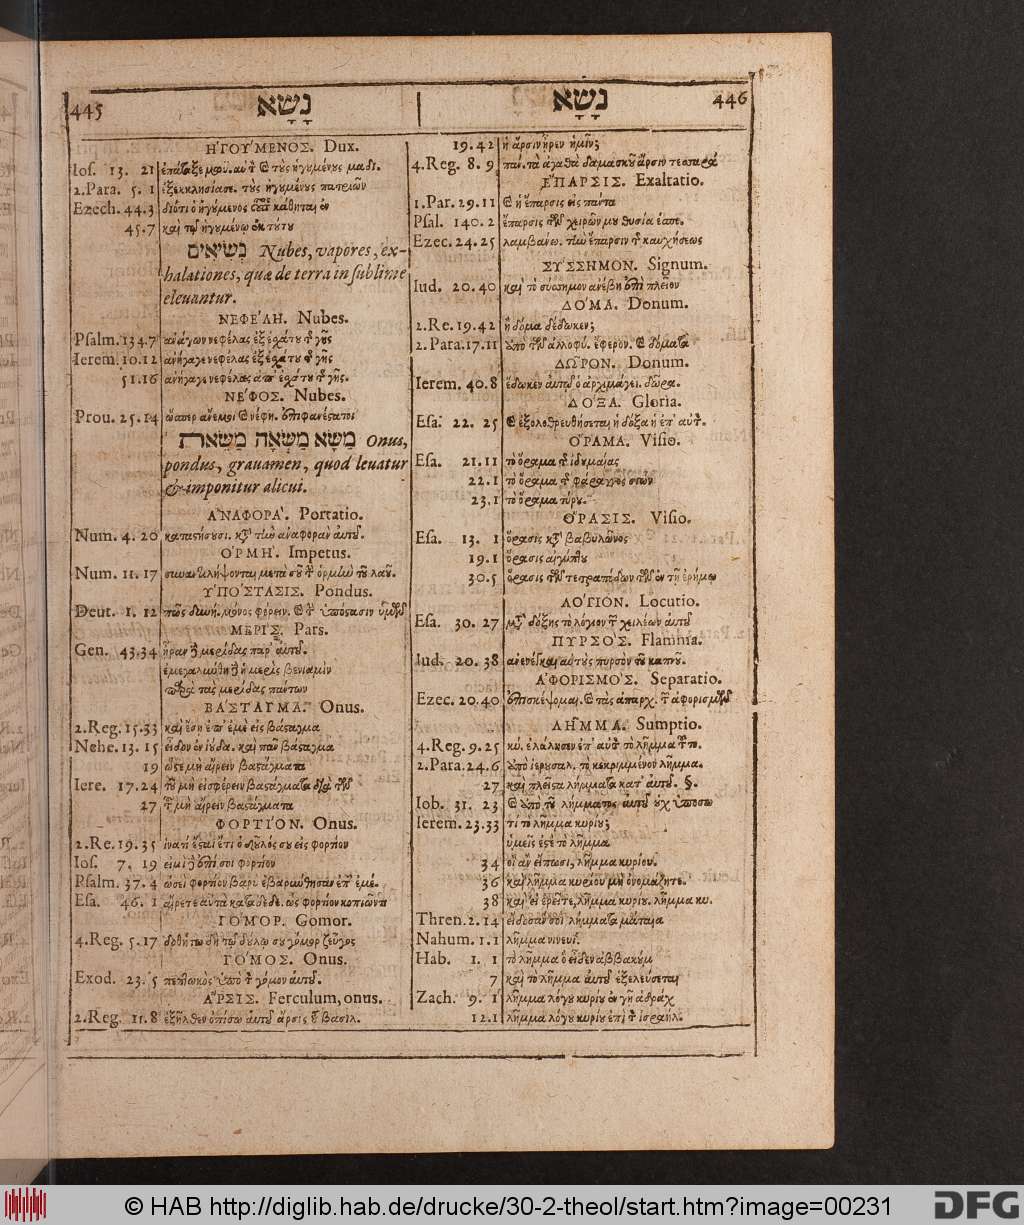 445 נָשָׂא
ΗΓΟΥ'ΜΕΝΟΣ. Dux.
Ios. 13. 21
2.Para. 5. 1
Ezech. 44.3 διότι ὁ ἡγούμενος
45.7 καὶ τῷ ἡγουμένῳ ἐκ τούτου
נְשִׂיאִים Nubes, vapores, ex-
halationes, quæ de terra in sublime
eleuantur.
ΝΕΦΕ'ΛΗ. Nubes.
Psalm. 134.7 ἀνάγων νεφέλας ἐξ ἐσχάτου τῆς γῆς
Ierem. 10.12 ἀνήγαγε νεφέλας ἐξ ἐσχάτου τῆς γῆς
51.16 ἀνήγαγε νεφέλας ἀπ' ἐσχάτου τῆς γῆς.
ΝΕ'ΦΟΣ. Nubes.
Prou. 25.14 ὥσπερ ἄνεμοι καὶ νέφη. ἐπιφανέστατοι
מַשָּׂא מַשְׂאָה מַשְׂאֵת Onus,
pondus, grauamen, quod leuatur
& imponitur alicui.
ΑΝΑΦΟΡΑ'. Portatio.
Num. 4. 20
ΟΡΜΗ'. Impetus.
Num. 11. 17
ΥΠΟ'ΣΤΑΣΙΣ. Pondus.
Deut. 1. 12
ΜΕΡΙ'Σ. Pars.
Gen. 43.34 ἦραν δὲ μερίδας παρ' αὐτοῦ.
ἐμεγαλύνθη δὲ ἡ μερὶς βενιαμὶν
παρὰ τὰς μερίδας πάντων
ΒΑ'ΣΤΑΓΜΑ. Onus.
2.Reg. 15.33 καὶ ἔσῃ ἐπ' ἐμὲ εἰς βάσταγμα
Nehe. 13. 15 εἶδον ἐν ἰούδα. καὶ πᾶν βάσταγμα
19 ὥστε μὴ αἴρειν βαστάγματα
Iere. 17.24 τοῦ μὴ εἰσφέρειν βαστάγματα διὰ τῶν
27 τοῦ μὴ αἴρειν βαστάγματα
ΦΟΡΤΙ'ΟΝ. Onus.
2.Re. 19.35 ἱνατί ἔσται ἔτι ὁ δοῦλός σου εἰς φορτίον
Ios. 7. 19 εἰμὶ ἐπὶ σοὶ φορτίον
Psalm. 37.4 ὡσεὶ φορτίον βαρὺ ἐβαρύνθησαν ἐπ' ἐμέ.
Esa. 46. 1
ΓΟ'ΜΟΡ. Gomor.
4.Reg. 5.17 δοθήτω δὴ τῷ δούλῳ σου γόμορ ζεῦγος
ΓΟ'ΜΟΣ. Onus.
Exod. 23. 5 πεπτωκὸς ὑπὸ τὸν γόμον αὐτοῦ.
Α'ΡΣΙΣ. Ferculum, onus.
2.Reg. 11.8 ἐξῆλθεν ὀπίσω αὐτοῦ ἄρσις τοῦ βασιλ.
נָשָׂא 446
19.42 ἢ ἄρσιν ἦρεν ἡμῖν;
4.Reg. 8. 9
Ε'ΠΑΡΣΙΣ. Exaltatio.
1.Par. 29.11
Psal. 140.2 ἔπαρσις τῶν χειρῶν μου θυσία ἑσπε.
Ezec. 24.25 λαμβάνω. τὴν ἔπαρσιν τῆς καυχήσεως
ΣΥ'ΣΣΗΜΟΝ. Signum.
Iud. 20.40 καὶ τὸ σύσσημον ἀνέβη ἐπὶ πλεῖον
ΔΟ'ΜΑ. Donum.
2.Re. 19.42 ἢ δόμα δέδωκεν;
2.Para. 17.11 ὑπὸ τῶν ἀλλοφύ. ἔφερον. καὶ δόματα
ΔΩ͂ΡΟΝ. Donum.
Ierem. 40.8 ἔδωκεν αὐτῷ ὁ ἀρχιμάγει. δῶρα.
ΔΟ'ΞΑ. Gloria.
Esa. 22. 25 καὶ ἐξολοθρευθήσεται ἡ δόξα ἡ ἐπ' αὐτόν.
Ο'ΡΑΜΑ. Visio.
Esa. 21.11 τὸ ὅραμα τῆς ἰδυμαίας
22.1 τὸ ὅραμα τῆς φάραγγος σιών
23.1 τὸ ὅραμα τύρου.
Ο'ΡΑΣΙΣ. Visio.
Esa. 13. 1 ὅρασις κατὰ βαβυλῶνος
19.1 ὅρασις αἰγύπτου
30.5 ὅρασις τῶν τετραπόδων τῶν ἐν τῇ ἐρήμῳ
ΛΟ'ΓΙΟΝ. Locutio.
Esa. 30. 27 μετὰ δόξης τὸ λόγιον τῶν χειλέων αὐτοῦ
ΠΥΡΣΟ'Σ. Flamma.
Iud. 20. 38 ἀνενέγκαι αὐτοὺς πυρσὸν τοῦ καπνοῦ.
ΑΦΟΡΙΣΜΟ'Σ. Separatio.
Ezec. 20.40
ΛΗ͂ΜΜΑ. Sumptio.
4.Reg. 9.25 κύ. ἐλάλησεν ἐπ' αὐτὸν τὸ λῆμμα
2.Para. 24.6
27 καὶ πλεῖστα λήμματα κατ' αὐτοῦ.
Iob. 31. 23
Ierem. 23.33 τί τὸ λῆμμα κυρίου;
ὑμεῖς ἐστὲ τὸ λῆμμα
34 οἳ ἂν εἴπωσι, λῆμμα κυρίου.
36 καὶ λῆμμα κυρίου μὴ ὀνομάζητε.
38 καὶ εἰ ἐρεῖτε, λῆμμα κυρίου. λῆμμα κυ.
Thren. 2. 14 εἴδοσάν σοι λήμματα μάταια
Nahum. 1.1 λῆμμα νινευΐ.
Hab. 1. 1 τὸ λῆμμα ὃ εἶδεν ἀββακούμ
7 καὶ τὸ λῆμμα αὐτοῦ ἐξελεύσεται
Zach. 9. 1 λῆμμα λόγου κυρίου ἐν γῇ ἀδράχ
12.1 λῆμμα λόγου κυρίου ἐπὶ τὸν ἰσραήλ.
© HAB http://diglib.hab.de/drucke/30-2-theol/start.htm?image=00231
DFG